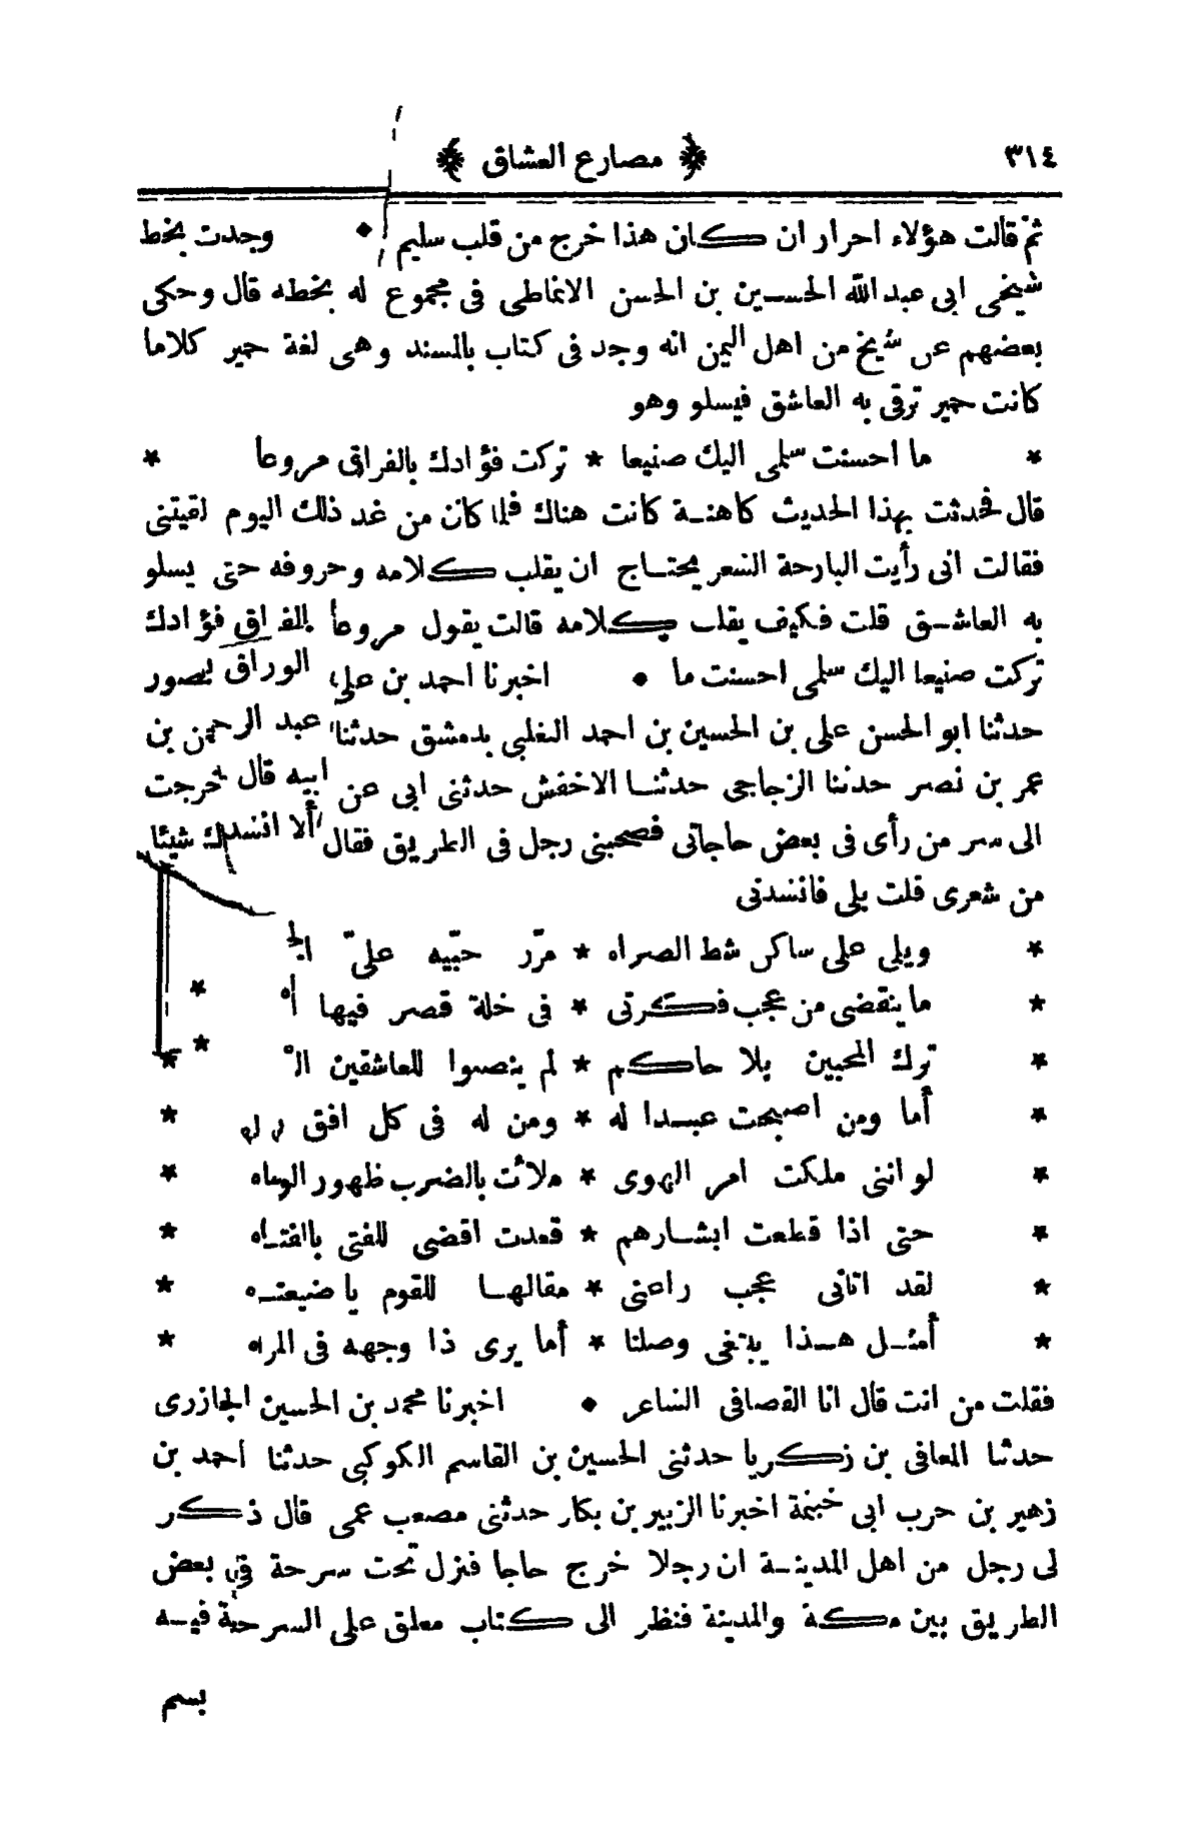 ٣١٤ ﴿ مصارع العشاق ﴾
ثمّ قالت هؤلاء احرار ان كان هذا خرج من قلب سليم • وجدت بخط
شيخى ابى عبد الله الحسين بن الحسن الانماطى فى مجموع له بخطه قال وحكى
بعضهم عن شيخ من اهل اليمن انه وجد فى كتاب بالمسند وهى لغة حمير كلاما
كانت حمير ترقى به العاشق فيسلو وهو
* ما احسنت سلمى اليك صنيعا * تركت فؤادك بالفراق مروعا *
قال فحدثت بهذا الحديث كاهنة كانت هناك فلما كان من غد ذلك اليوم لقيتنى
فقالت انى رأيت البارحة الشعر يحتاج ان يقلب كلامه وحروفه حتى يسلو
به العاشق قلت فكيف يقلب كلامه قالت يقول مروعا بالفراق فؤادك
تركت صنيعا اليك سلمى احسنت ما • اخبرنا احمد بن على الوراق بصور
حدثنا ابو الحسن على بن الحسين بن احمد التغلبي بدمشق حدثنا عبد الرحمن بن
عمر بن نصر حدثنا الزجاجى حدثنا الاخفش حدثنى ابى عن ابيه قال خرجت
الى سر من رأى فى بعض حاجاتى فصحبنى رجل فى الطريق فقال ألا انشدك شيئا
من شعرى قلت بلى فانشدنى
* ويلى على ساكن شط الصراه * مرّر حبّيه علىّ
* ما ينقضى من عجب فكرتى * فى خلة قصر فيها *
* ترك المحبين بلا حاكم * لم ينصبوا للعاشقين *
* أما ومن اصبحت عبدا له * ومن له فى كل افق *
* لو اننى ملكت امر الهوى * ملأت بالضرب ظهور الوشاه *
* حتى اذا قطعت ابشارهم * قعدت اقضى للفتى بالفتاه *
* لقد اتانى عجب راعنى * مقالها للقوم يا ضيعتاه *
* أمثل هذا يبتغى وصلنا * أما يرى ذا وجهه فى المراه *
فقلت من انت قال انا القصافى الشاعر • اخبرنا محمد بن الحسين الجازرى
حدثنا المعافى بن زكريا حدثنى الحسين بن القاسم الكوكبى حدثنا احمد بن
زهير بن حرب ابى خيثمة اخبرنا الزبير بن بكار حدثنى مصعب عمى قال ذكر
لى رجل من اهل المدينة ان رجلا خرج حاجا فنزل تحت سرحة فى بعض
الطريق بين مكة والمدينة فنظر الى كتاب معلق على السرحة فيه
بسم